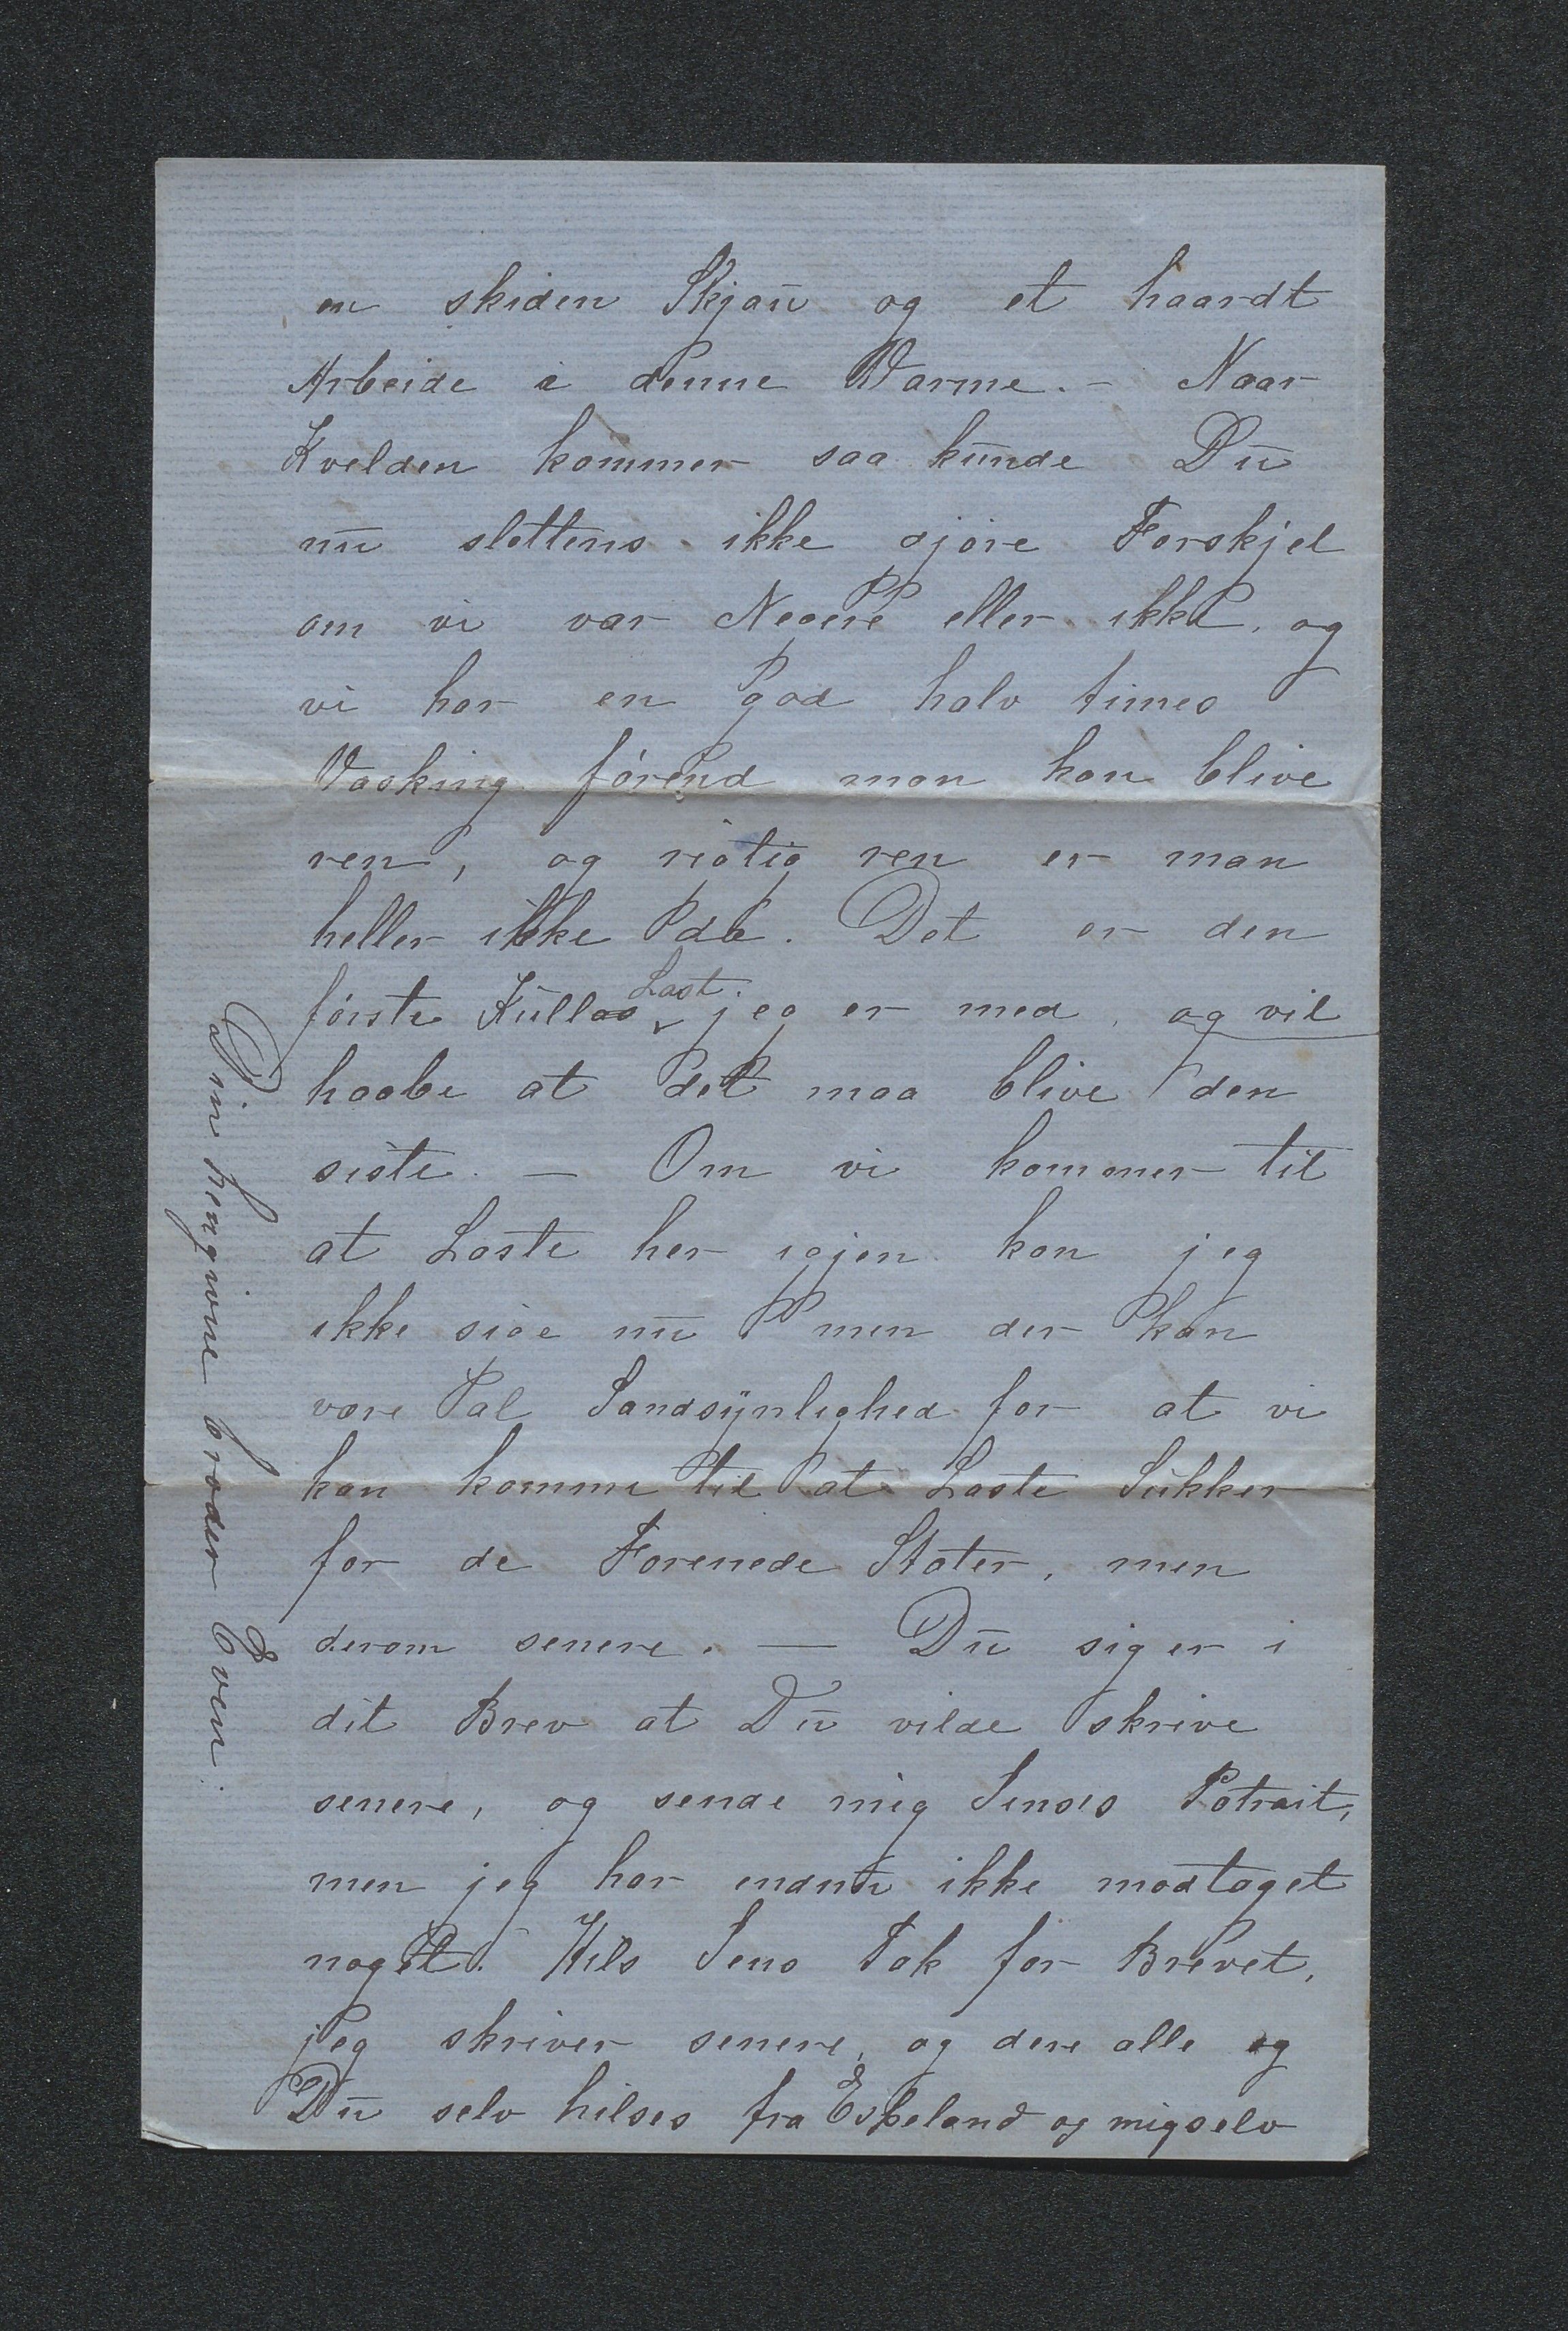 en skiden Skjau og et haardt
Arbeide i denne Varme. – Naar
Kvelden kommer saa kunde Du
nu slettens ikke gjøre Forskjel
om vi var Negere eller ikke, og
vi har en god halv times
Vasking førend man kan blive
ren, og rigtig ren er man
heller ikke da. Det er den
første Kullas Last jeg er med, og vil
haabe at det maa blive den
siste. — Om vi kommer til
at Laste her igjen kan jeg
ikke sige nu men der kan
være Tal Sandsynlighed for at vi
kan komme til at Laste Sukker
for de Forenede Stater, men
derom senere. — Du siger i
dit Brev at Du vilde skrive
senere, og sende mig Jenses Potrait,
men jeg har endnu ikke modtaget
noget. Hils Jens Tak for Brevet,
jeg skriver senere, og dere alle og
Du selv hilses fra Eskeland og migselv
Din hengivne broder Even.